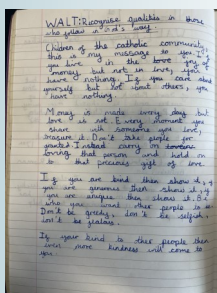 WALT: Recognise qualities in those
who follow in God's way.
Children of the catholic community,
this is my message to you. If
you live in the love you of
money, but not in love, you
have nothing. If you care about
yourself but not about others, you
have nothing.
Money is made every day but
love is not. Every moment you
share with someone you love,
treasure it. Don't take people for
granted. Instead carry on
loving that person and hold on
to that precious gift of love.
If you are kind then show it, if
you are generous then show it, if
you are unique then show it. Be
who you want other people to see.
Don't be greedy, don't be selfish,
don't be jealous.
If your kind to other people then
even more kindness will come to
you.